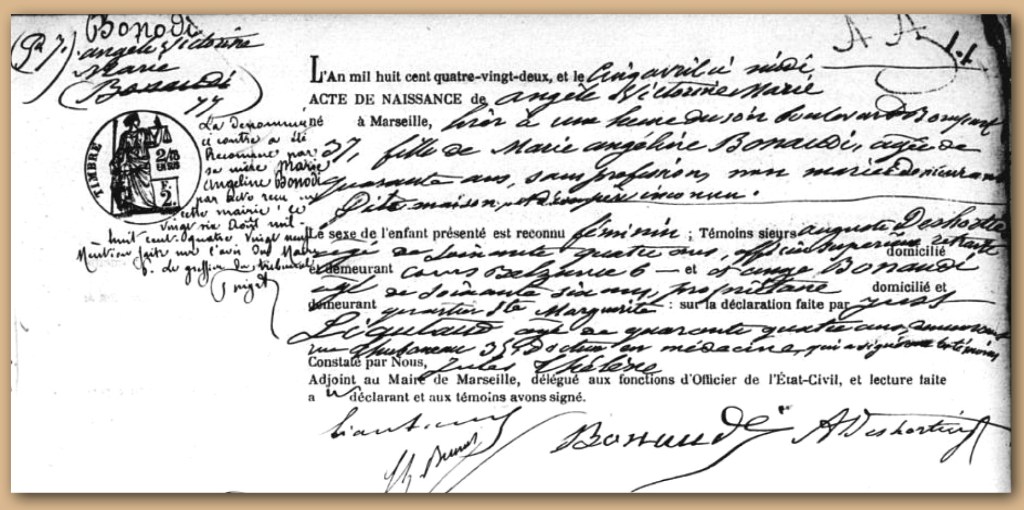 Bonodi
angèle Victorine
Marie
(Bonaudi)
77
TIMBRE
La Denommée
ci contre a été
Reconnue par
sa mère Marie
Angeline Bonodi
par acte reçu
cette mairie le
vingt six Août mil
huit cent quatre vingt neuf
Mention faite sur l'avis
du greffier du tribunal
L'An mil huit cent quatre-vingt-deux, et le Cinq avril à midi
ACTE DE NAISSANCE de angèle Victorine Marie
né à Marseille, hier à une heure du soir boulevard
37, fille de Marie angéline Bonaudi, agée de
quarante ans, sans profession, non mariée demeurant
dite maison, et de père inconnu.
Le sexe de l'enfant présenté est reconnu féminin ; Témoins sieurs auguste Deshorties
agé de soixante quatre ans, officier Supérieur retraité domicilié
et demeurant cours Belzunce 6 – et ange Bonaudi
agé de soixante six ans, propriétaire domicilié et
demeurant quartier Ste Marguerite : sur la déclaration faite par
agé de quarante quatre ans, demeurant
rue 35, Docteur en médecine, qui a signé avec les témoins
Constaté par Nous, Jules
Adjoint au Maire de Marseille, délégué aux fonctions d'Officier de l'État-Civil, et lecture faite
a u déclarant et aux témoins avons signé.
Bonaudi A Deshorties